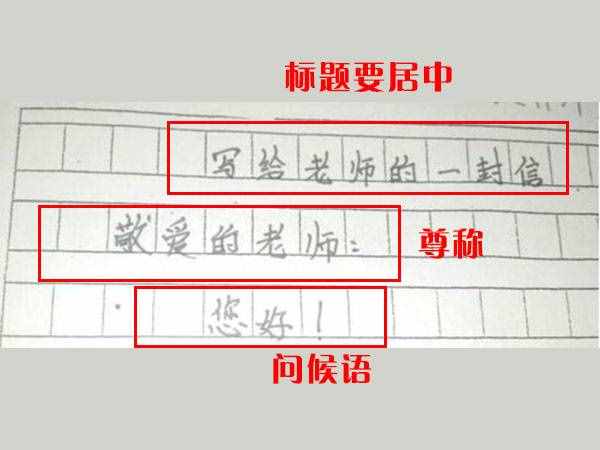 标题要居中
写给老师的一封信
敬爱的老师：
尊称
您好！
问候语